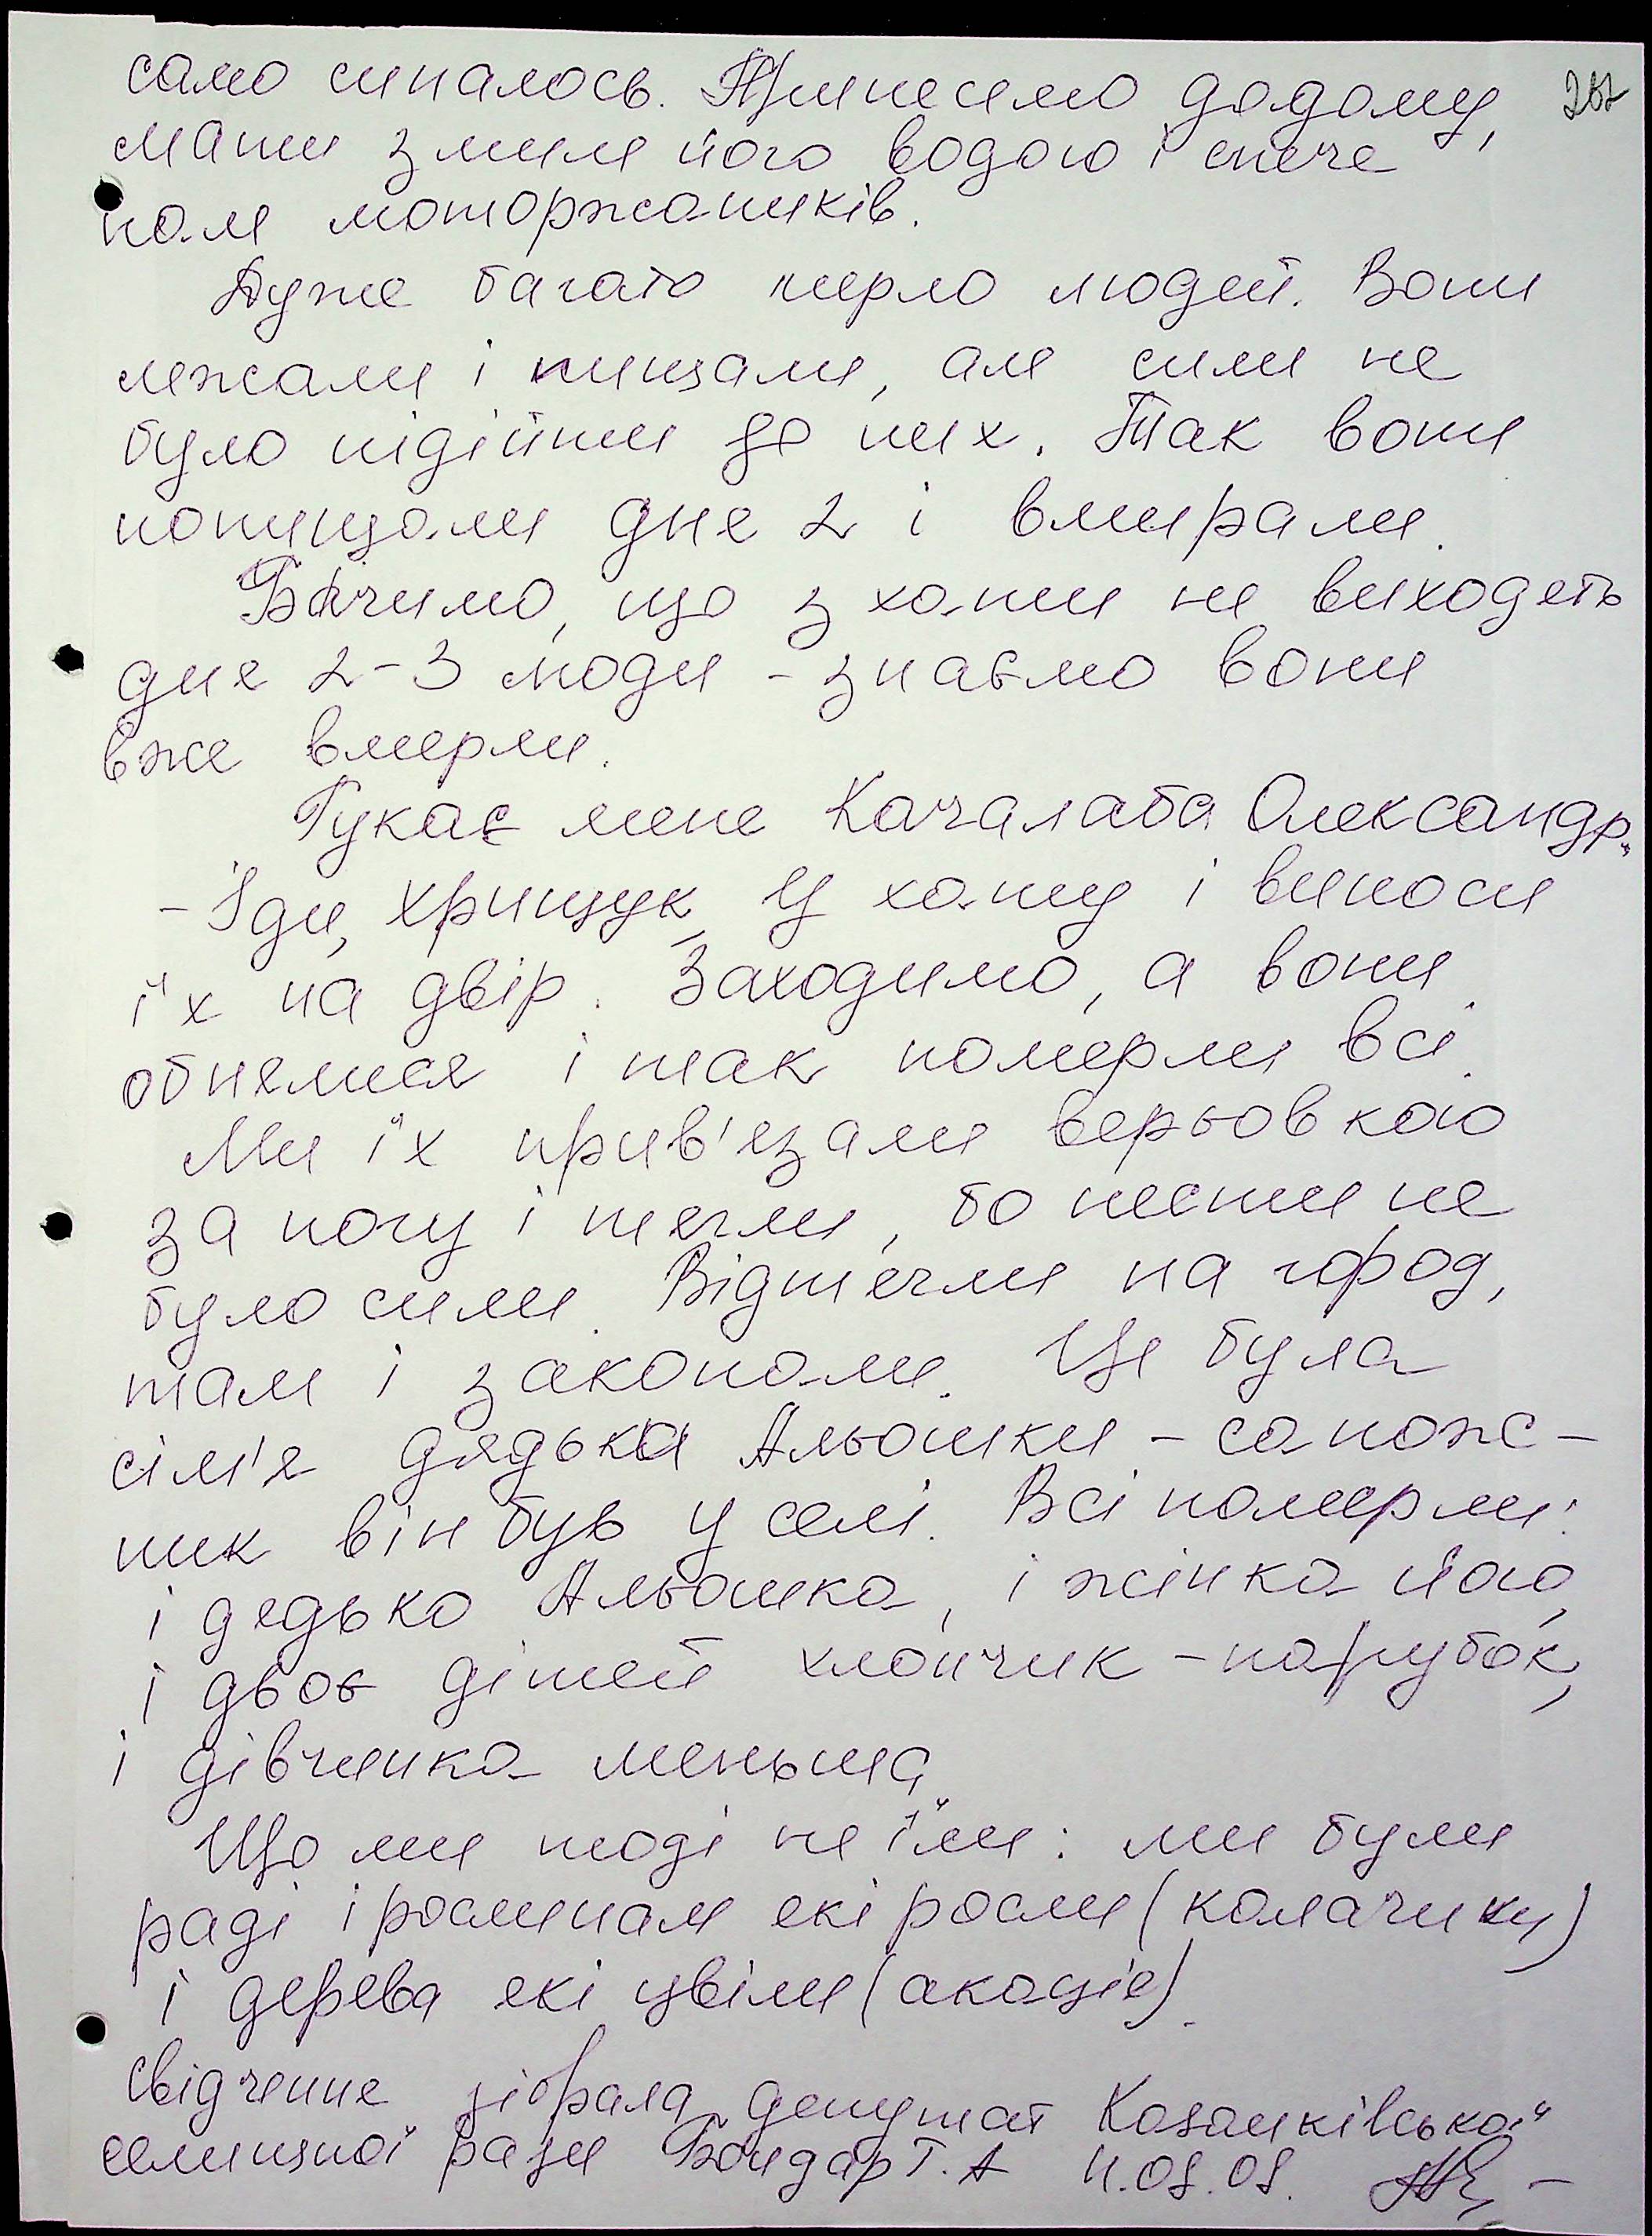 само сипалось. Принесемо додому, 267
мати змиля його водою і спече
нам моторжаників.
Дуже багато мерло людей. Вони
лежали і пищали, але сили не
було підійти до них. Так вони
попищали дня 2 і вмирали.
Бачимо, що з хати не виходять
дня 2-3 люди - знаємо вони
вже вмерли.
Гукає мене Качалаба Олександр.
- Іди, Хрищук, у хату і виноси
їх на двір. Заходимо, а вони
обнялися і так померли всі.
Ми їх прив'язали верьовкою
за ногу і тягли, бо нести не
було сили. Відтягли на город,
там і закопали. Це була
сім'я дядька Альошки - сапож-
ник він був у селі. Всі померли:
і дядько Альошка, і жінка його,
і двоє дітей хлопчик - парубок,
і дівчинка меньша.
Що ми тоді не їли: ми були
раді і рослинам які росли (калачики)
і дерева які цвіли (акація).
Свідчення зібрала депутат Казанківської
селищної ради Бондар Т. А 11.08.08.